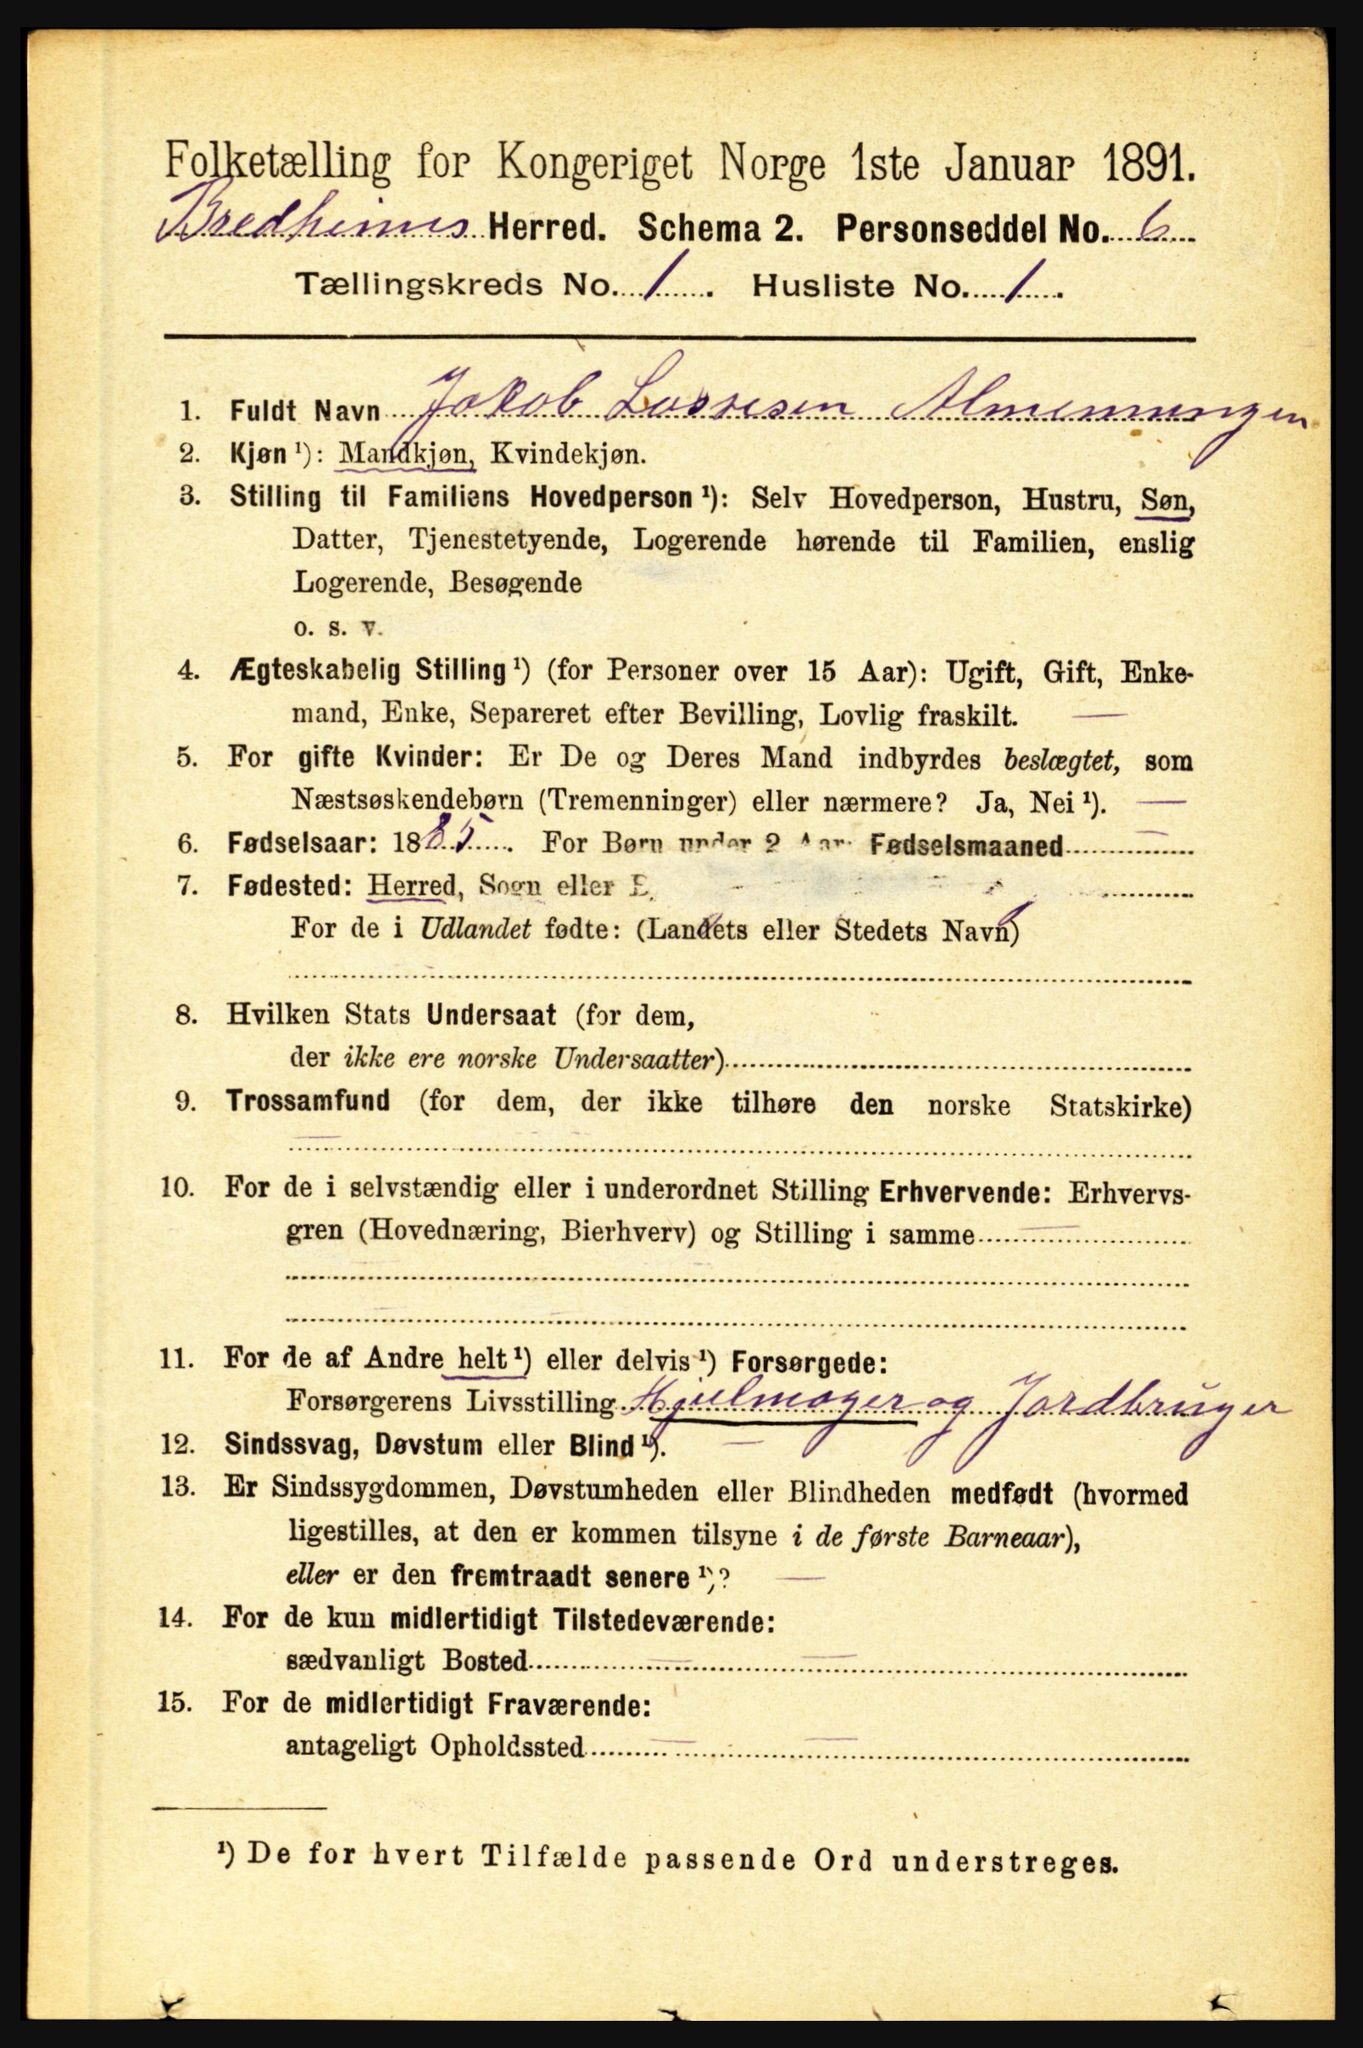 Folketælling for Kongeriget Norge 1ste Januar 1891.
Bredheims Herred. Schema 2. Personseddel No. 6
Tællingskreds No. 1. Husliste No. 1.
1. Fuldt Navn Jakob Lassesen Almenningen
2. Kjøn ¹): Mandkjøn, Kvindekjøn.
3. Stilling til Familiens Hovedperson ¹): Selv Hovedperson, Hustru, Søn,
Datter, Tjenestetyende, Logerende hørende til Familien, enslig
Logerende, Besøgende
o. s. v.
4. Ægteskabelig Stilling ¹) (for Personer over 15 Aar): Ugift, Gift, Enke-
mand, Enke, Separeret efter Bevilling, Lovlig fraskilt. —
5. For gifte Kvinder: Er De og Deres Mand indbyrdes beslægtet, som
Næstsøskendebørn (Tremenninger) eller nærmere? Ja, Nei ¹). —
6. Fødselsaar: 1885. For Børn under 2 Aar: Fødselsmaaned —
7. Fødested: Herred, Sogn eller
For de i Udlandet fødte: (Landets eller Stedets Navn)
8. Hvilken Stats Undersaat (for dem,
der ikke ere norske Undersaatter)
9. Trossamfund (for dem, der ikke tilhøre den norske Statskirke)
—
10. For de i selvstændig eller i underordnet Stilling Erhvervende: Erhvervs-
gren (Hovednæring, Bierhverv) og Stilling i samme —
11. For de af Andre helt ¹) eller delvis ¹) Forsørgede:
Forsørgerens Livsstilling Hjulmager og Jordbruger
12. Sindssvag, Døvstum eller Blind ¹). —
13. Er Sindssygdommen, Døvstumheden eller Blindheden medfødt (hvormed
ligestilles, at den er kommen tilsyne i de første Barneaar),
eller er den fremtraadt senere ¹)? —
14. For de kun midlertidigt Tilstedeværende:
sædvanligt Bosted — —
15. For de midlertidigt Fraværende:
antageligt Opholdssted — —
¹) De for hvert Tilfælde passende Ord understreges.